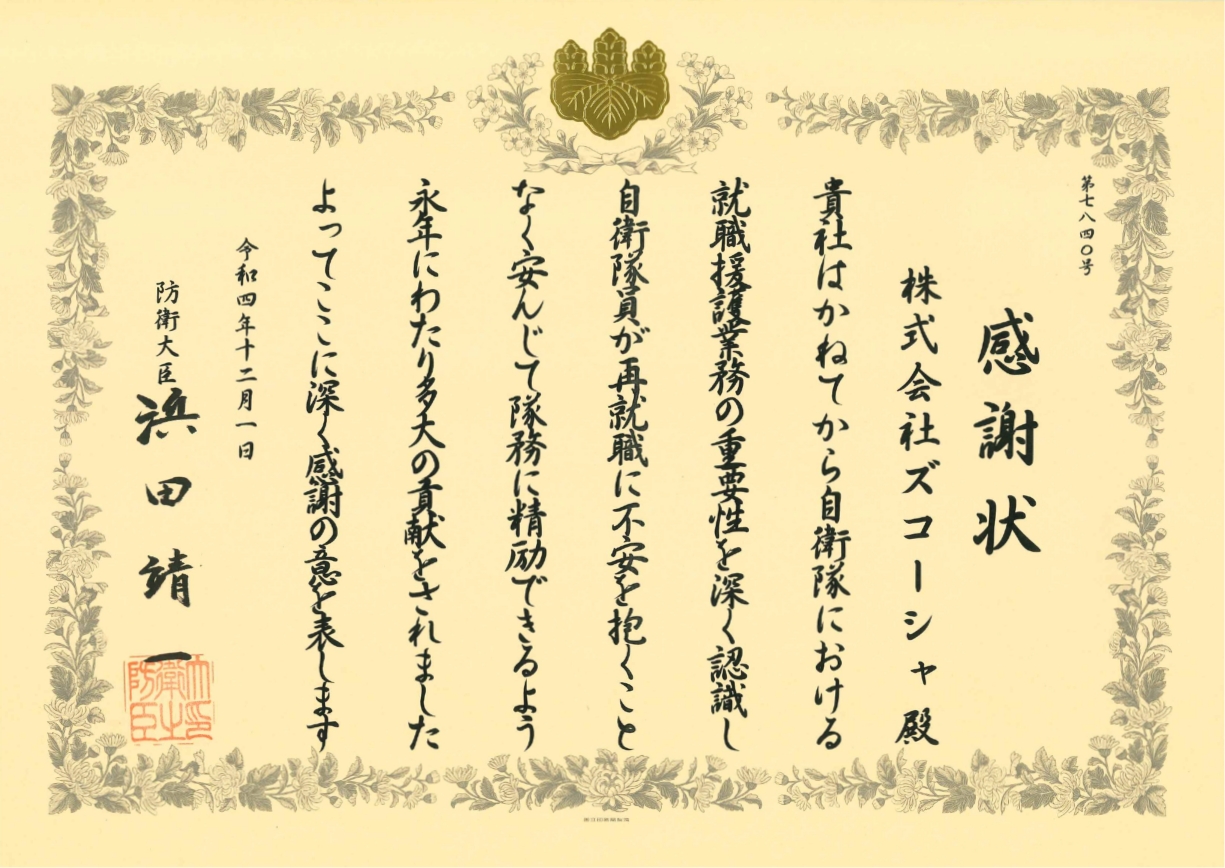 第七八四〇号
感謝状
株式会社ズコーシャ殿
貴社はかねてから自衛隊における
就職援護業務の重要性を深く認識し
自衛隊員が再就職に不安を抱くこと
なく安んじて隊務に精励できるよう
永年にわたり多大の貢献をされました
よってここに深く感謝の意を表します
令和四年十二月一日
防衛大臣 浜田靖一